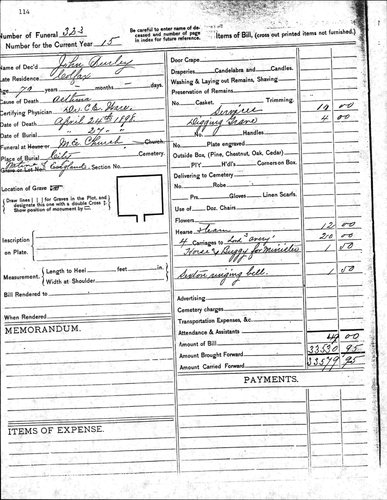 114
Number of Funeral 323
Number for the Current Year 15
Be careful to enter name of deceased and number of page in index for future reference.
Items of Bill, (cross out printed items not furnished.)
Name of Dec'd John
Late Residence Colfax
Age, 79 years - months - days.
Cause of Death Asthma
Certifying Physician Dr. C.B. Hare.
Date of Death April 24th 1898
Date of Burial " 27 "
Funeral at House or M.E. Church Church.
Place of Burial City Cemetery.
Grave or Lot No. Section No.
Location of Grave
Draw lines for Graves in the Plot, and designate this one with a double Cross
Show position of monument by
Inscription on Plate.
Measurement. Length to Heel feet in.
Width at Shoulder "
Bill Rendered to
When Rendered
MEMORANDUM.
ITEMS OF EXPENSE.
Door Crape
Draperies Candelabra and Candles.
Washing & Laying out Remains, Shaving
Preservation of Remains
No. Casket, Trimming.
Services 19 00
Digging Grave 4 00
No. Handles
Plate engraved
Outside Box, (Pine, Chestnut, Oak, Cedar)
P/V H'd's Cemerson Box.
Delivering to Cemetery
No. Robe
Prs. Gloves Linen Scarfs.
Use of Doz. Chairs
Flowers
Hearse + team 12 00
4 Carriages to 20 00
Horse & Buggy for Minister 1 50
Sexton ringing bell. 1 50
Advertising
Cemetery charges
Transportation Expenses, &c.
Attendance & Assistants
Amount of Bill 49 00
Amount Brought Forward 33530 95
Amount Carried Forward 33579 95
PAYMENTS.